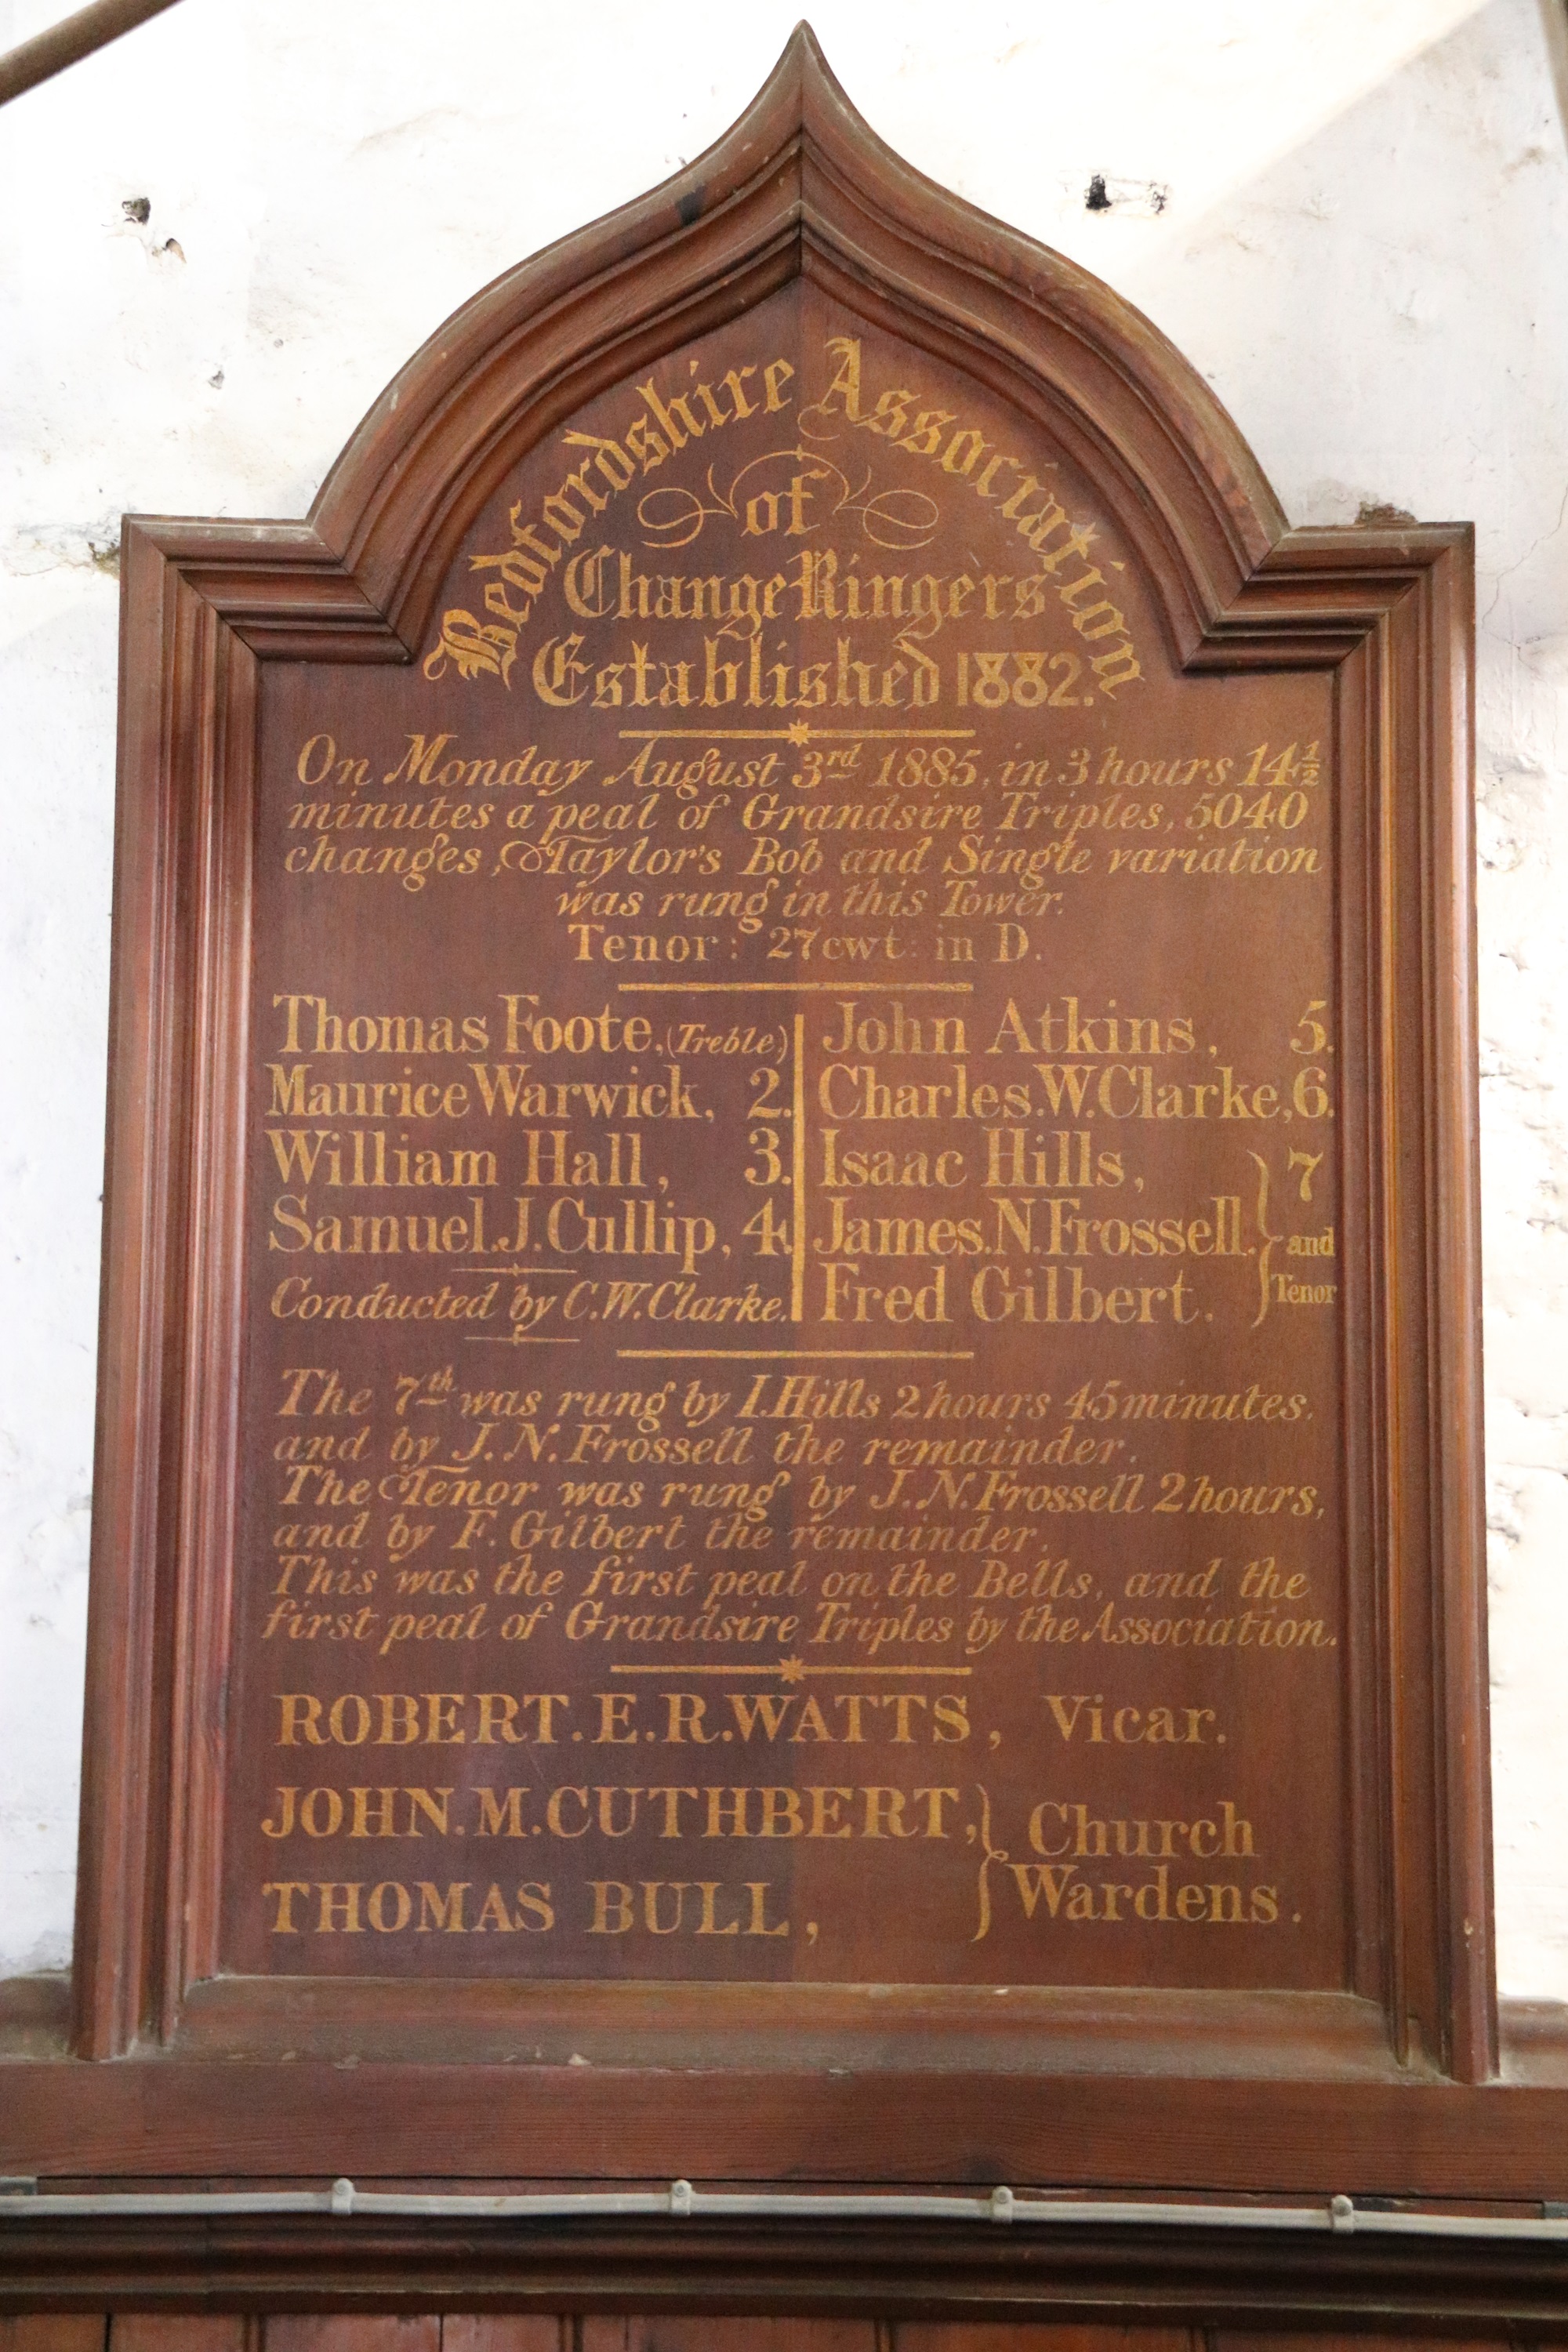 Bedfordshire Association
of
Change Ringers
Established 1882.
On Monday August 3rd 1885, in 3 hours 14½
minutes a peal of Grandsire Triples, 5040
changes, Taylor's Bob and Single variation
was rung in this Tower.
Tenor: 27 cwt: in D.
Thomas Foote, (Treble)
Maurice Warwick, 2.
William Hall, 3.
Samuel. J. Cullip, 4.
Conducted by C. W. Clarke.
John Atkins, 5.
Charles. W. Clarke, 6.
Isaac Hills,
James. N. Frossell.
Fred Gilbert.
7
and
Tenor
The 7th was rung by I. Hills 2 hours 45 minutes.
and by J. N. Frossell the remainder.
The Tenor was rung by J. N. Frossell 2 hours,
and by F. Gilbert the remainder.
This was the first peal on the Bells, and the
first peal of Grandsire Triples by the Association.
ROBERT. E. R. WATTS, Vicar.
JOHN. M. CUTHBERT,
THOMAS BULL,
Church
Wardens.